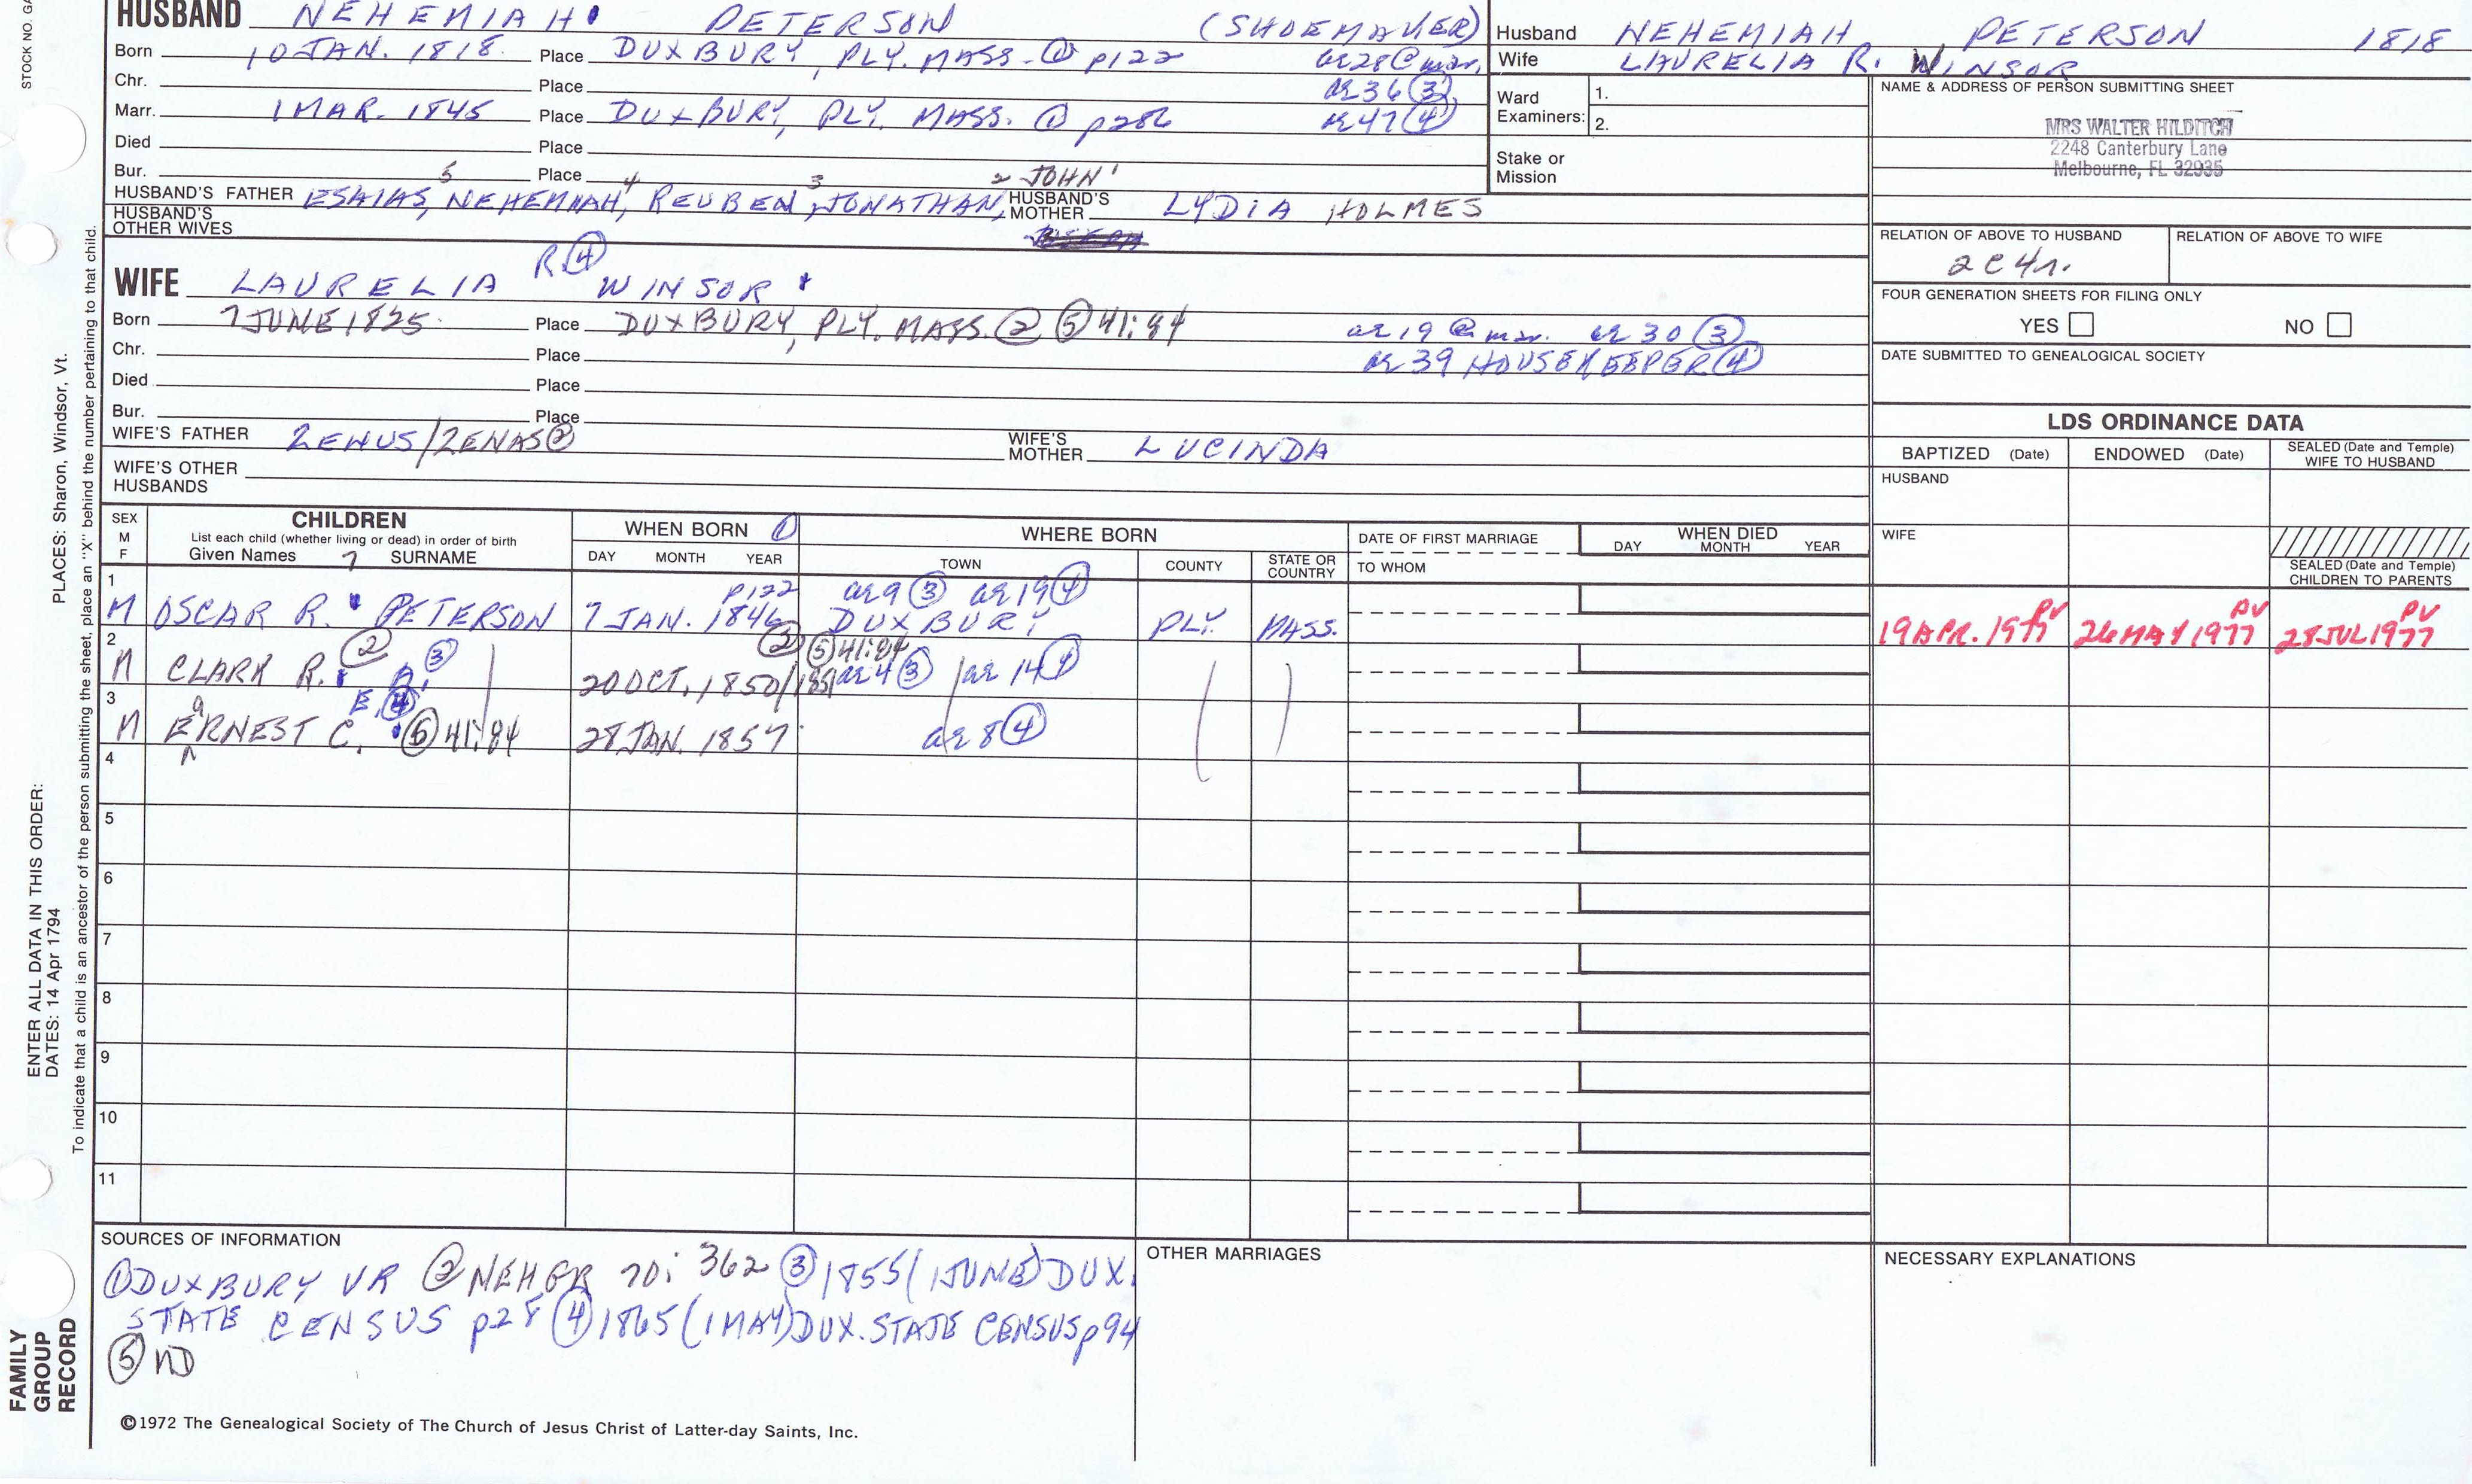 STOCK NO. GA
HUSBAND NEHEMIAH PETERSON (SHOEMAKER)
Born 10 JAN. 1818. Place DUXBURY, PLY. MASS. ① p122 ae 28 @ mar.
Chr. Place ae 36 ③
Marr. 1 MAR. 1845 Place DUXBURY, PLY. MASS. ① p286 ae 47 ④
Died Place
Bur. Place
5 4 3 2 JOHN 1
HUSBAND'S FATHER ESAIAS, NEHEMIAH, REUBEN, JONATHAN, HUSBAND'S MOTHER LYDIA HOLMES
HUSBAND'S OTHER WIVES
WIFE LAURELIA R. ④ WINSOR
Born 7 JUNE 1825. Place DUXBURY, PLY. MASS. ② ⑤ 41:84 ae 19 @ mar. ae 30 ③
Chr. Place ae 39 HOUSEKEEPER ④
Died Place
Bur. Place
WIFE'S FATHER ZENUS/ZENAS ② WIFE'S MOTHER LUCINDA
WIFE'S OTHER HUSBANDS
Husband NEHEMIAH PETERSON 1818
Wife LAURELIA R. WINSOR
Ward Examiners: 1.
2.
Stake or Mission
NAME & ADDRESS OF PERSON SUBMITTING SHEET
MRS WALTER HILDITCH
2248 Canterbury Lane
Melbourne, FL 32935
RELATION OF ABOVE TO HUSBAND RELATION OF ABOVE TO WIFE
2C4r.
FOUR GENERATION SHEETS FOR FILING ONLY
YES NO
DATE SUBMITTED TO GENEALOGICAL SOCIETY
LDS ORDINANCE DATA
BAPTIZED (Date) ENDOWED (Date) SEALED (Date and Temple) WIFE TO HUSBAND
HUSBAND
WIFE
SEALED (Date and Temple) CHILDREN TO PARENTS
SEX M F CHILDREN WHEN BORN ① WHERE BORN DATE OF FIRST MARRIAGE WHEN DIED
List each child (whether living or dead) in order of birth
Given Names 7 SURNAME DAY MONTH YEAR TOWN COUNTY STATE OR COUNTRY TO WHOM DAY MONTH YEAR
1 p122 ae 9 ③ ae 19 ④
M OSCAR R. PETERSON 7 JAN. 1846 DUXBURY PLY. MASS. 19 APR. 1977 PV 26 MAY 1977 PV 28 JUL 1977 PV
2 ② ③ ② ⑤ 41:84
M CLARK R. 20 OCT. 1850/ ae 4 ③ ae 14 ④
3 E. ④
M EaRNEST C. ⑤ 41:84 28 JAN. 1857 ae 8 ④
4
5
6
7
8
9
10
11
SOURCES OF INFORMATION
① DUXBURY VR ② NEHGR 70:362 ③ 1855 (1 JUNE) DUX.
STATE CENSUS p28 ④ 1865 (1 MAY) DUX. STATE CENSUS p94
⑤ MD
OTHER MARRIAGES
NECESSARY EXPLANATIONS
©1972 The Genealogical Society of The Church of Jesus Christ of Latter-day Saints, Inc.
FAMILY GROUP RECORD
ENTER ALL DATA IN THIS ORDER:
DATES: 14 Apr 1794
PLACES: Sharon, Windsor, Vt.
To indicate that a child is an ancestor of the person submitting the sheet, place an "X" behind the number pertaining to that child.